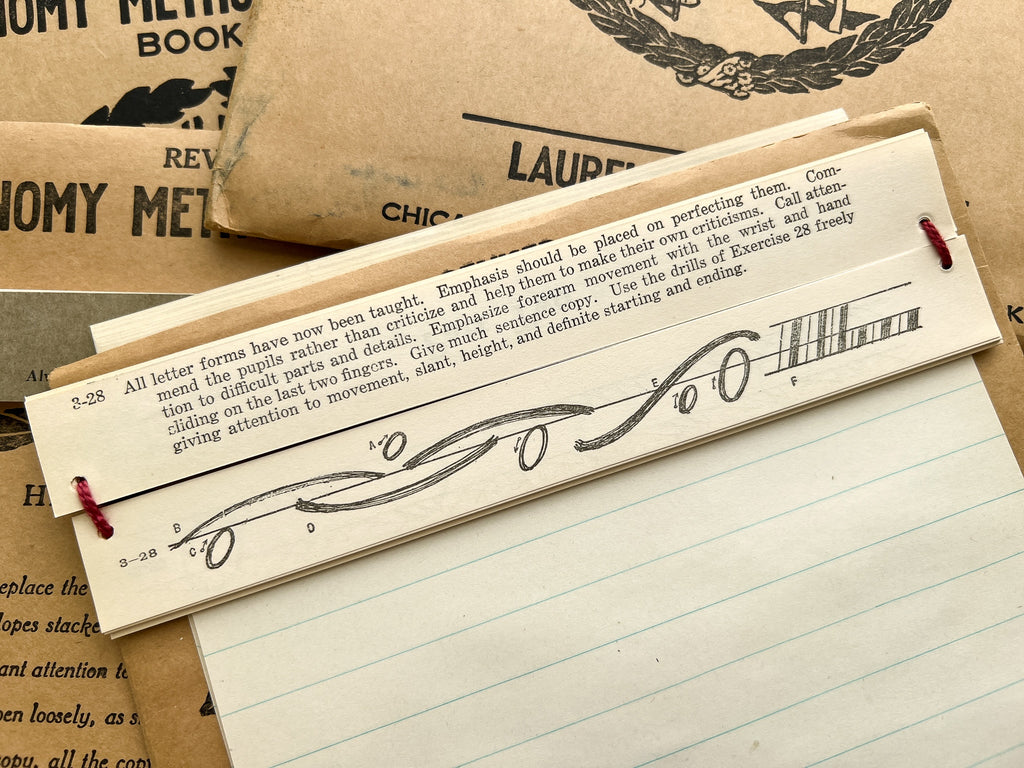 NOMY METHO
BOOK
REV
NOMY MET
LAUREL
CHICA
3-28 All letter forms have now been taught. Emphasis should be placed on perfecting them. Com-
mend the pupils rather than criticize and help them to make their own criticisms. Call atten-
tion to difficult parts and details. Emphasize forearm movement with the wrist and hand
sliding on the last two fingers. Give much sentence copy. Use the drills of Exercise 28 freely
giving attention to movement, slant, height, and definite starting and ending.
3-28 B C D A E F
eplace the
lopes stacke
ant attention to
pen loosely, as s
copy, all the copy